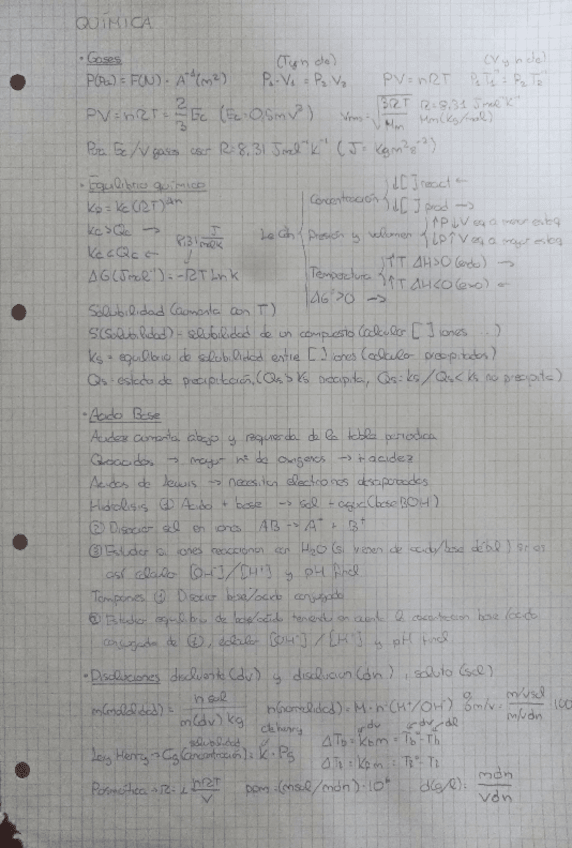 QUÍMICA
· Gases (T y n cte) (V y n cte)
P(Pa) = F(N) · A⁻¹(m²) P₁·V₁ = P₂V₂ PV = nRT P₁T₁⁻¹ = P₂T₂⁻¹
PV = nRT = 2/3 Ec (Ec = 0,5mv²) Vrms = √(3RT/Mm) R = 8,31 Jmol⁻¹K⁻¹ Mm (kg/mol)
Para Ec/V gases usar R = 8,31 Jmol⁻¹K⁻¹ (J = kgm²s⁻²)
· Equilibrio químico
Kp = Kc(RT)^Δn
Kc > Qc →
Kc < Qc ←
8,31 J/molK
ΔG(Jmol⁻¹) = -RT Ln K
Le Ch
Concentración ↓[ ] react ←
↓[ ] prod →
Presión y volumen ↑P↓V eq a menor esteq
↓P↑V eq a mayor esteq
Temperatura ↑T ΔH>0 (endo) →
↑T ΔH<0 (exo) ←
ΔG>0 →
Solubilidad (aumenta con T)
S (Solubilidad) = solubilidad de un compuesto (calcular [ ] iones ...)
Ks = equilibrio de solubilidad entre [ ] iones (calcular precipitados)
Qs = estado de precipitación (Qs > Ks precipita, Qs = Ks / Qs < Ks no precipita)
· Ácido Base
Acidez aumenta abajo y izquierda de la tabla periodica
Oxoacidos → mayor nº de oxigenos → + acidez
Acidos de Lewis → necesitan electrones desapareados
Hidrolisis ① Acido + base → sal + agua (base BOH)
② Disociar sal en iones AB → A⁺ + B⁺
③ Estudiar si iones reaccionan con H₂O (si vienen de acido/base débil) si es
así calculo [OH⁻]/[H⁺] y pH final
Tampones ① Disociar base/acido conjugado
② Estudiar equilibrio de base/acido teniendo en cuenta la concentracion base/acido
conjugado de ①, calcular [OH⁻]/[H⁺] y pH final
· Disoluciones disolvente (dv) y disolucion (dn), soluto (sol)
m(molalidad) = n sol / m(dv) kg n(normalidad) = M·n(H⁺/OH⁻) % m/v = m/v sol / m/v dn · 100
Ley Henry → Cg (concentración) solubilidad = K · Pg de henry ΔTb = Kb m = Tb - Tb dv dv dl
ΔTf = Kf m = Tf - Tf
P osmótica → π = i nRT/V ppm = (msol/mdn)·10⁶ d(g/l) = mdn/Vdn